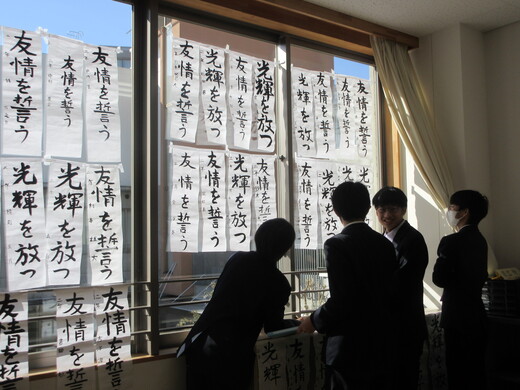 友情を誓う
友情を誓う
友情を誓う
友情を誓う
光輝を放つ
友情を誓う
光輝を放つ
光輝を放つ
友情を誓う
友情を誓う
友情を誓う
光輝を放つ
光輝を放つ
友情を誓う
友情を誓う
友情を誓う
光輝を放つ
友情を誓う
友情を誓う
光輝を放
友情を誓
友情を誓
友情を誓
光輝